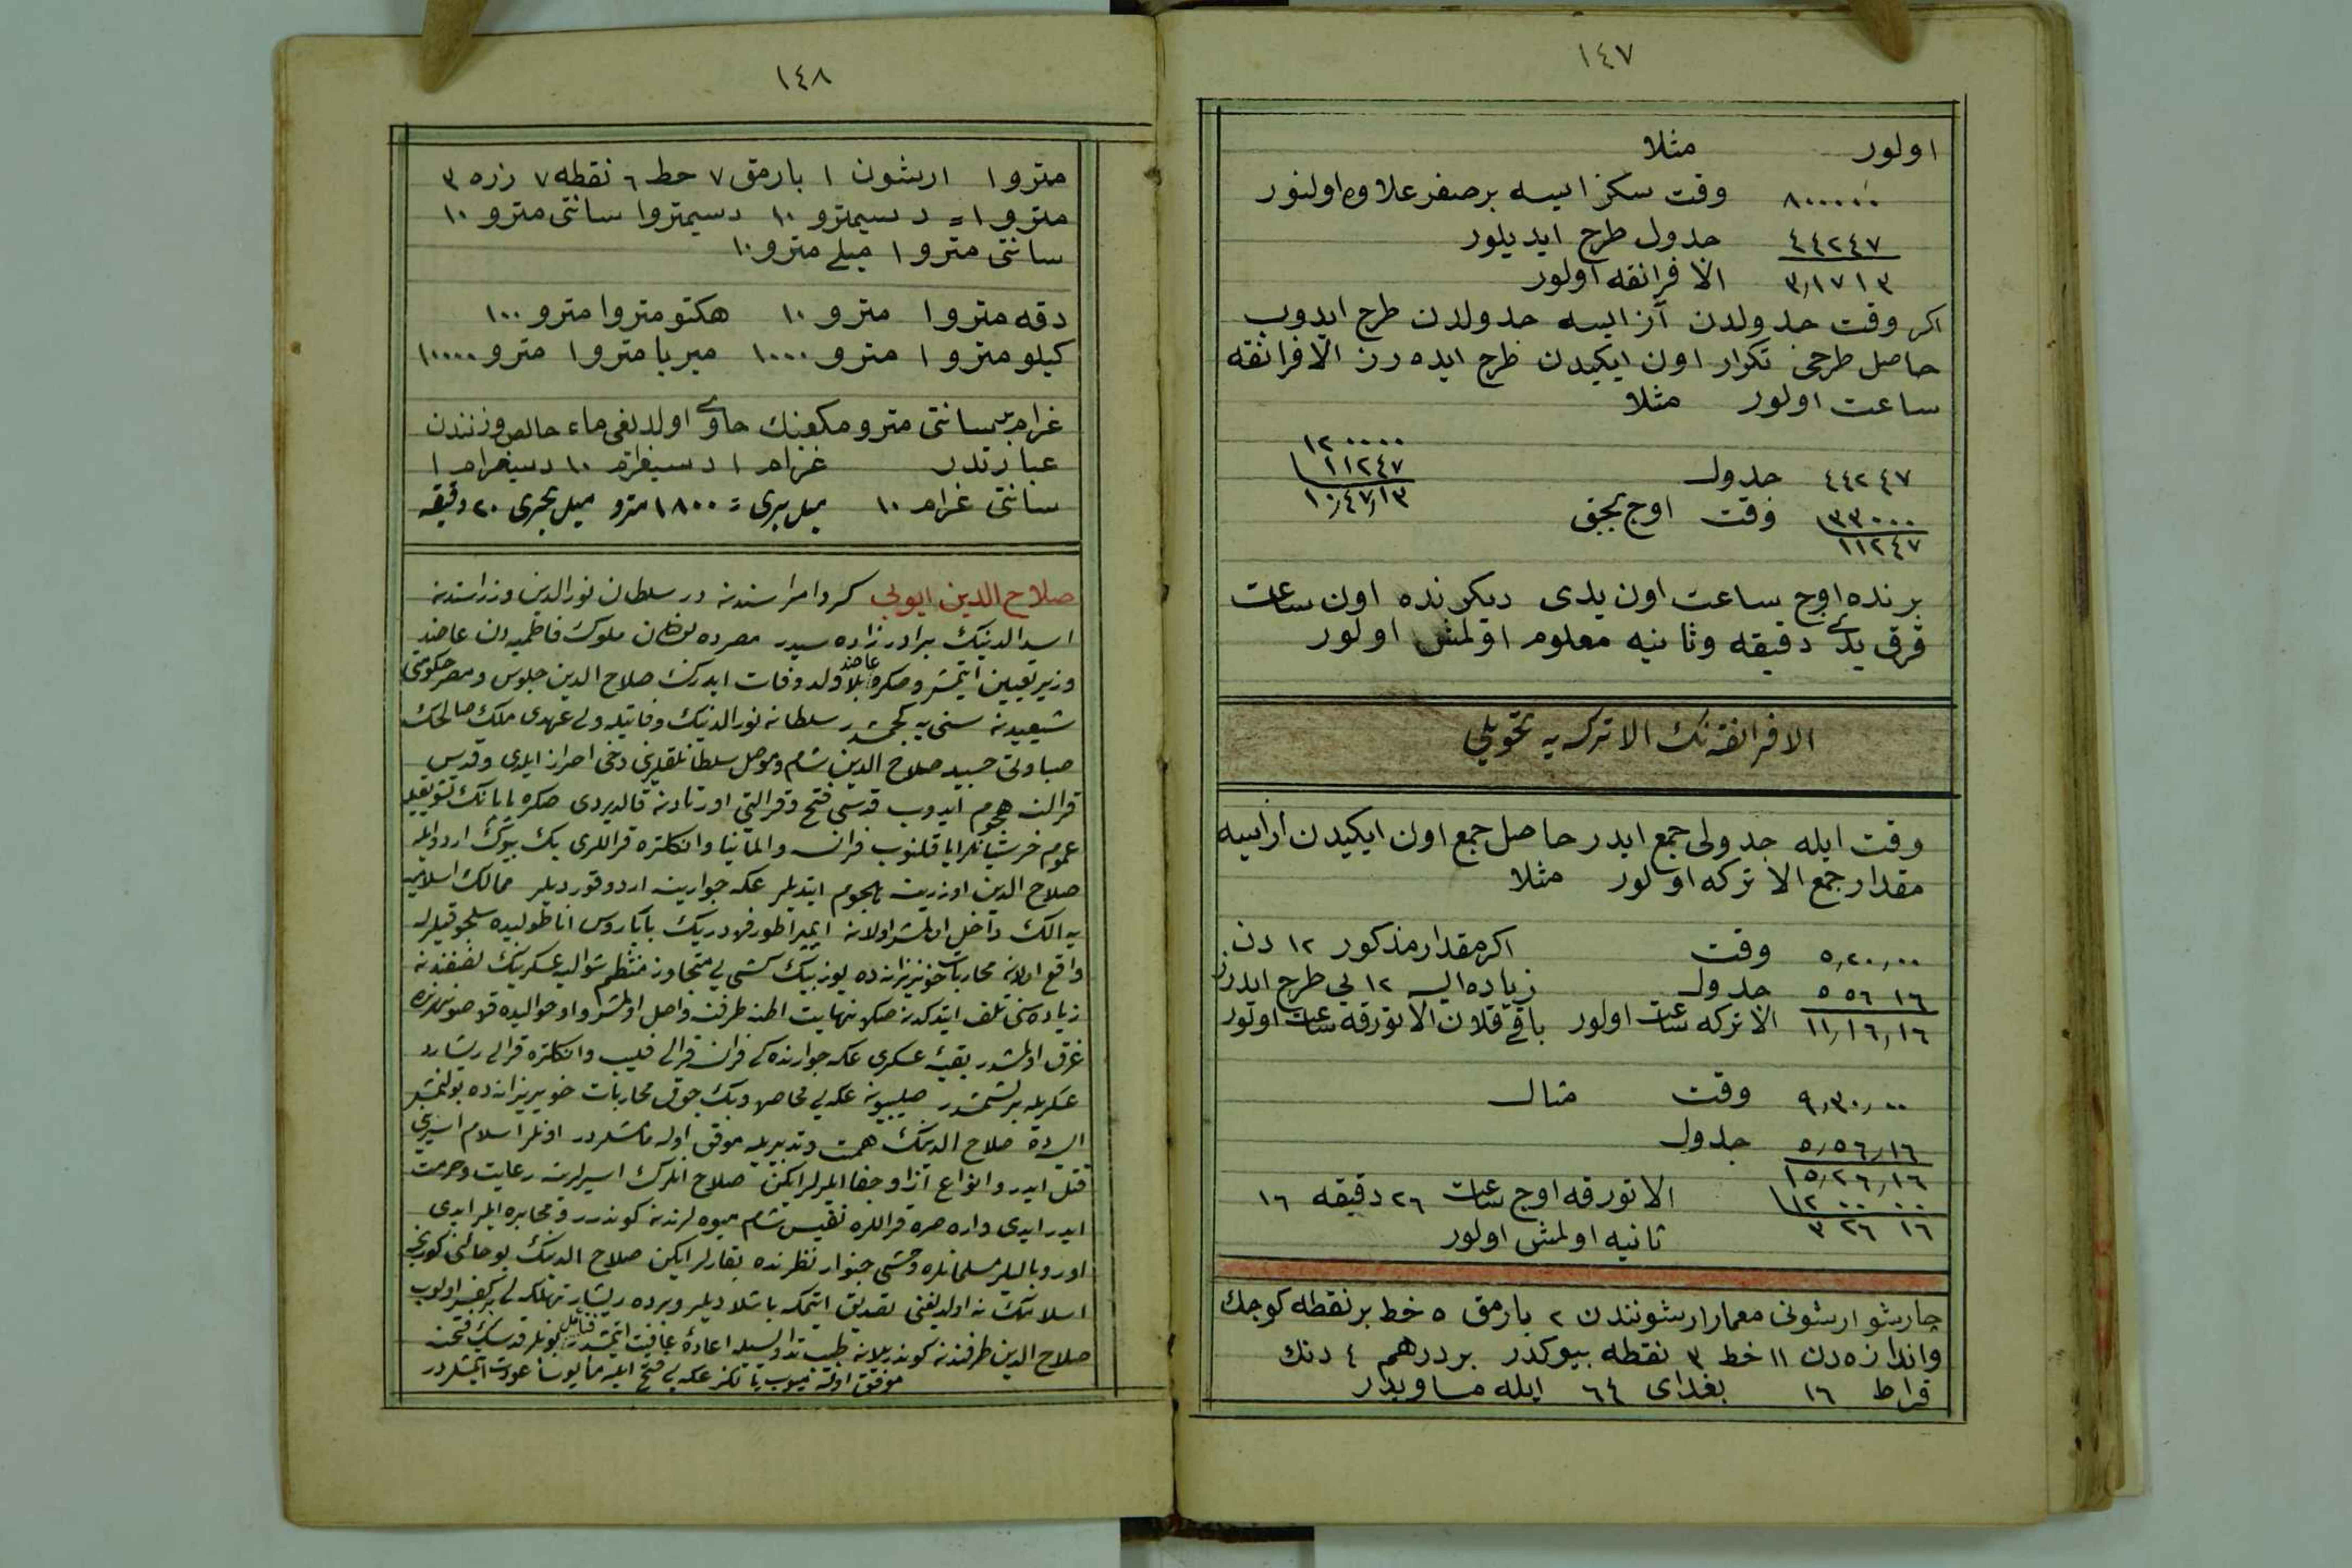 ١٤٧
اولور مثلا
٨٠٠٠٠٠ وقت سكز ايسه برصفر علاوه اولنور
٤٤٢٤٧ جدول طرح ايديلور
٣,١٧١٣ الافرانقه اولور
اكر وقت جدولدن آز ايسه جدولدن طرح ايدوب
حاصل طرحى تكرار اون ايكيدن طرح ايده رز الافرانقه
ساعت اولور مثلا
٤٤٢٤٧ جدول ١٢٠٠٠٠
٣٣٠٠٠ وقت اوج بچق ١١٢٤٧
١١٢٤٧ ١٠,٤٧,١٣
برنده اوج ساعت اون يدى ديكرنده اون ساعت
قرق يدى دقيقه وثانيه معلوم اولمش اولور
الافرانقه نك الاتركه يه تحويلى
وقت ايله جدولى جمع ايدر حاصل جمع اون ايكيدن از ايسه
مقدار جمع الاتركه اولور مثلا
٥,٢٠,٠٠ وقت اكر مقدار مذكور ١٢ دن
٥ ٥٦ ١٦ جدول زياده ايسه ١٢ يى طرح ايدرز
١١,١٦,١٦ الاتركه ساعت اولور باقى قلان الاتورقه ساعت اولور
٩,٣٠,٠٠ وقت مثال
٥,٥٦,١٦ جدول
١٥,٢٦,١٦
١٢ ٠٠ ٠٠ الاتورقه اوج ساعت ٢٦ دقيقه ١٦
٣ ٢٦ ١٦ ثانيه اولمش اولور
چارشو ارشونى معمار ارشونندن ٢ بارمق ٥ خط بر نقطه كوچك
واندازه دن ١١ خط ٣ نقطه بيوكدر بر درهم ٤ دنك
قراط ١٦ بغداى ٦٤ ايله مساويدر
١٤٨
مترو ١ ارشون ١ بارمق ٧ حط ٦ نقطه ٧ زره ٣
مترو ١ = دسيمترو ١٠ دسيمترو ١ سانتى مترو ١٠
سانتى مترو ١ ميلى مترو ١٠
دقه مترو ١ مترو ١٠ هكتو مترو ١ مترو ١٠٠
كيلو مترو ١ مترو ١٠٠٠ ميريا مترو ١ مترو ١٠٠٠٠
غرام بر سانتى مترو مكعبنك حاوى اولديغى ماء خالص وزنندن
عبارتدر غرام ١ دسيغرام ١٠ دسيغرام ١
سانتى غرام ١٠ ميل برى = ١٨٠٠ مترو ميل بحرى ٢٠ دقيقه
صلاح الدين ايوبى كرد امراسندن در سلطان نورالدين وزراسندن
اسد الدينك برادرزاده سيدر مصرده بولنان ملوك فاطميه دن عاضد
وزير تعيين ايتمش وصكره عاضد بلا ولد وفات ايدرك صلاح الدين جلوس ومصر حكومتى
شيعيدن سنى يه كچمشدر سلطان نورالدينك وفاتيله ولى عهدى ملك صالحك
صباوتى حسبيله صلاح الدين شام وموصل سلطانلقلرينى دخى احراز ايلدى وقدس
قرالنه هجوم ايدوب قدسى فتح وقراليتى اورتادن قالديردى صكره پاپانك تشويقيله
عموم خرستيانلر اياقلنوب فرانسه والمانيا وانكلتره قراللرى پك بيوك اردو ايله
صلاح الدين اوزرينه هجوم ايتديلر عكه جوارينه اردو قورديلر ممالك اسلاميه
يه الك داخل اولمش اولان ايمپراطور فردريك بابا روس اناطوليده سلجوقيلرله
واقع اولان محاربات خونريزانه ده يوز بيك كشى يى متجاوز منتظم عسكرينك نصفندن
زياده سنى تلف ايتدكدن صكره نهايت اطنه طرفنه واصل اولمش واو حواليده
غرق اولمشدر بقيه عسكرى عكه جوارنده كى فرانسه قرالى فيليپ وانكلتره قرالى ريشارد
عسكريله برلشمشدر صليبيون عكه يى محاصره وپك چوق محاربات خونريزانه ده بولنمشلر
ايسه ده صلاح الدينك همت وتدبيريله موفق اوله مامشلردر اونلر اسلام اسيرينى
قتل ايدر وانواع اذا وجفا ايلرلر ايكن صلاح انلرك اسيرلرينه رعايت وحرمت
ايدر ايدى واره صره قراللره نفيس شام ميوه لرندن كوندرر ومخابره ايلر ايدى
اوروپاليلر مسلمانلره وحشى جنوار نظرنده بقارلر ايكن صلاح الدينك بو حالنى كورنجه
اسلامك نه اولديغنى تصديق ايتمكه باشلاديلر وبرده ريشار تهلكه لى
صلاح الدين طرفندن كوندريلن طبيب تداويسيله اعاده عافيت ايتمشدر بونلر قدسك فتحنه
موفق اوله ميوب يالكز عكه يى فتح ايله مأيوسا عودت ايتمشلردر